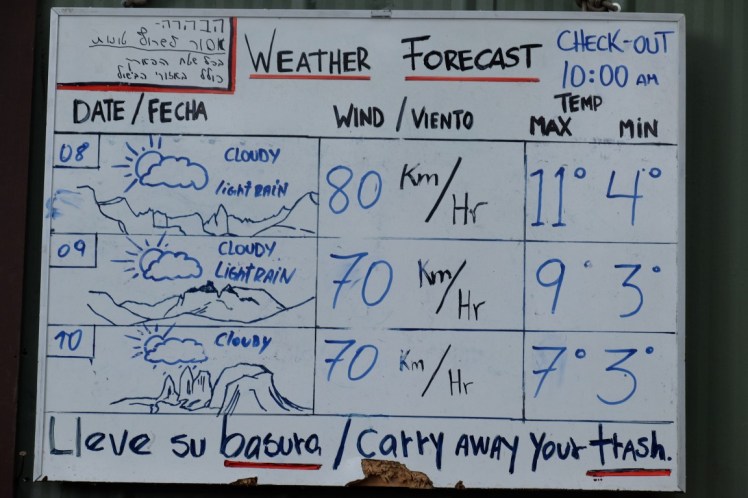 הבהרה-
אסור לשרוף
בכל שטח הפארק
כולל באזורי הבישול
WEATHER FORECAST
CHECK-OUT
10:00 AM
DATE / FECHA
WIND / VIENTO
TEMP
MAX MIN
08
CLOUDY
lightRAIN
80 Km/Hr
11° 4°
09
CLOUDY
LIGHTRAIN
70 Km/Hr
9° 3°
10
CLOUDY
70 Km/Hr
7° 3°
Lleve su basura / Carry AWAY Your trash.